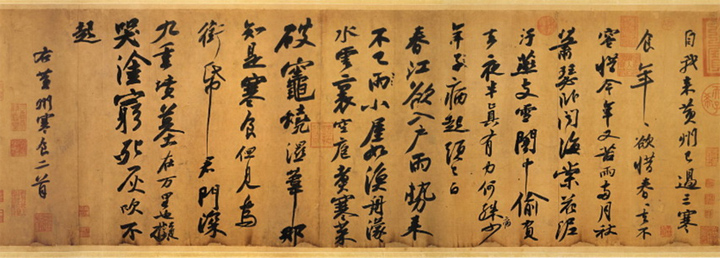 自我來黃州已過三寒
食年々欲惜春々去不
容惜今年又苦雨兩月秋
蕭瑟臥聞海棠花泥
汙燕支雪闇中偷負
去夜半真有力何殊病少
年子病起頭已白
春江欲入戶雨勢來
不已雨小屋如漁舟濛々
水雲裏空庖煮寒菜
破竈燒濕葦那
知是寒食但見烏
銜帋君門深
九重墳墓在万里也擬
哭塗窮死灰吹不
起
右黃州寒食二首